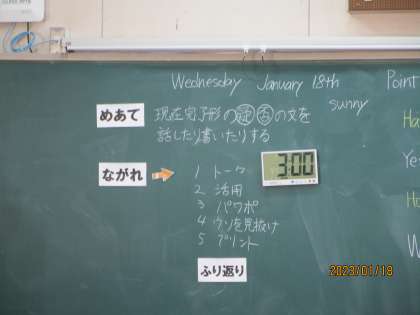 Wednesday January 18th
sunny
Point
めあて
現在完了形の疑否の文を
話したり書いたりする
ながれ
1 トーク
2 活用
3 パワポ
4 ウソを見抜け
5 プリント
3:00
Ha
Ye
Ha
W
ふり返り
2023/01/18